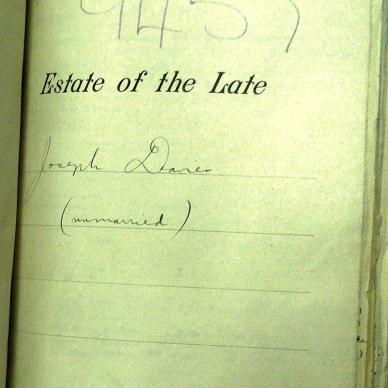 9457
Estate of the Late
Joseph Davies
(unmarried)